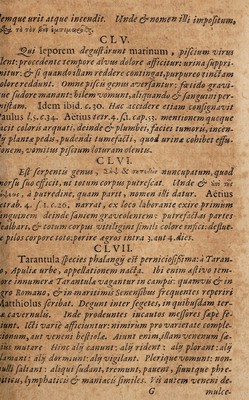 emque urit atque incendit. Unde & nomen illi impositum,
CLV.
Qui leporem degustârunt marinum, piscium virus
lent: procedente tempore alvum dolore afficitur: urina suppri-
nitur: & si quando illam reddere contingat, purpureo tinctam
olore reddunt. Omne piscis genus aversantur: fœtido grava-
sudore manant: bilem vomunt, aliquando & sanguini per-
mistam. Idem ibid. c. 30. Hac accidere etiam consignavit
Paulus l. 5. c. 34. Aetius tetr. 4. s. 1. cap. 53. mentionem quoque
facit coloris arquati, deinde & plumbei, faciei tumoris, incen-
planta pedis, pudendi tumefacti, quod urina cohibet effusi-
onem, vomitus piscium loturam olentis.
CLVI.
Est serpentis genus, nuncupatum, quod
morsu suo efficit, ut totum corpus putrescat. Unde &
à putredine, quam parit, nomen illi datum. Aetius
tetrab. 4. s. 1. c. 20. narrat, ex loco laborante exire primum
sanguinem deinde saniem graveolentem: putrefactas partes
dealbari, & totum corpus vitiligini similis colore infici: deflue-
pilos corpore toto; perire agros intra 3. aut 4. dies.
CLVII.
Tarantula species phalangij est perniciosissima: à Taran-
to, Apuliæ urbe, appellationem nacta. Ibi enim æstivo tem-
pore innumeræ Tarantulæ vagantur in campis: quamvis & in
agro Romano, & in maritimis Senensibus frequentes reperiri
Matthiolus scribat. Degunt inter segetes, in quibusdam ter-
ræ cavernulis. Inde prodeuntes incautos messores sæpe fe-
riunt. Icti variè afficiuntur: nimirum pro varietate comple-
xionum, aut veneni bestiolæ. Aiunt enim, illam venenum sæ-
pius mutare Hinc alij canunt: alij rident: alij plorant: alij
clamant: alij dormiunt: alij vigilant. Plerique vomunt: non-
nulli saltant: aliqui sudant, tremunt, pavent, fiuntque phre-
netici, lymphaticis & maniacis similes. Vis autem veneni de-
G mulce-